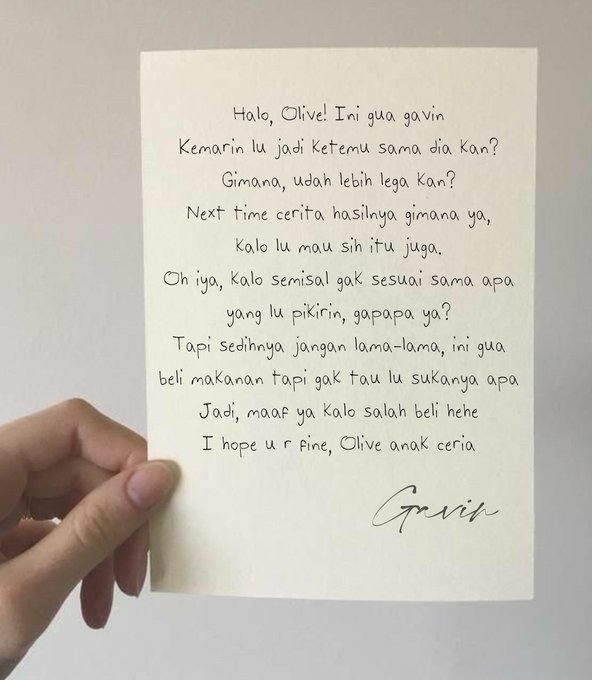 Halo, Olive! Ini gua gavin
Kemarin lu jadi ketemu sama dia kan?
Gimana, udah lebih lega kan?
Next time cerita hasilnya gimana ya,
Kalo lu mau sih itu juga.
Oh iya, kalo semisal gak sesuai sama apa
yang lu pikirin, gapapa ya?
Tapi sedihnya jangan lama-lama, ini gua
beli makanan tapi gak tau lu sukanya apa
Jadi, maaf ya kalo salah beli hehe
I hope u r fine, Olive anak ceria
Gavin